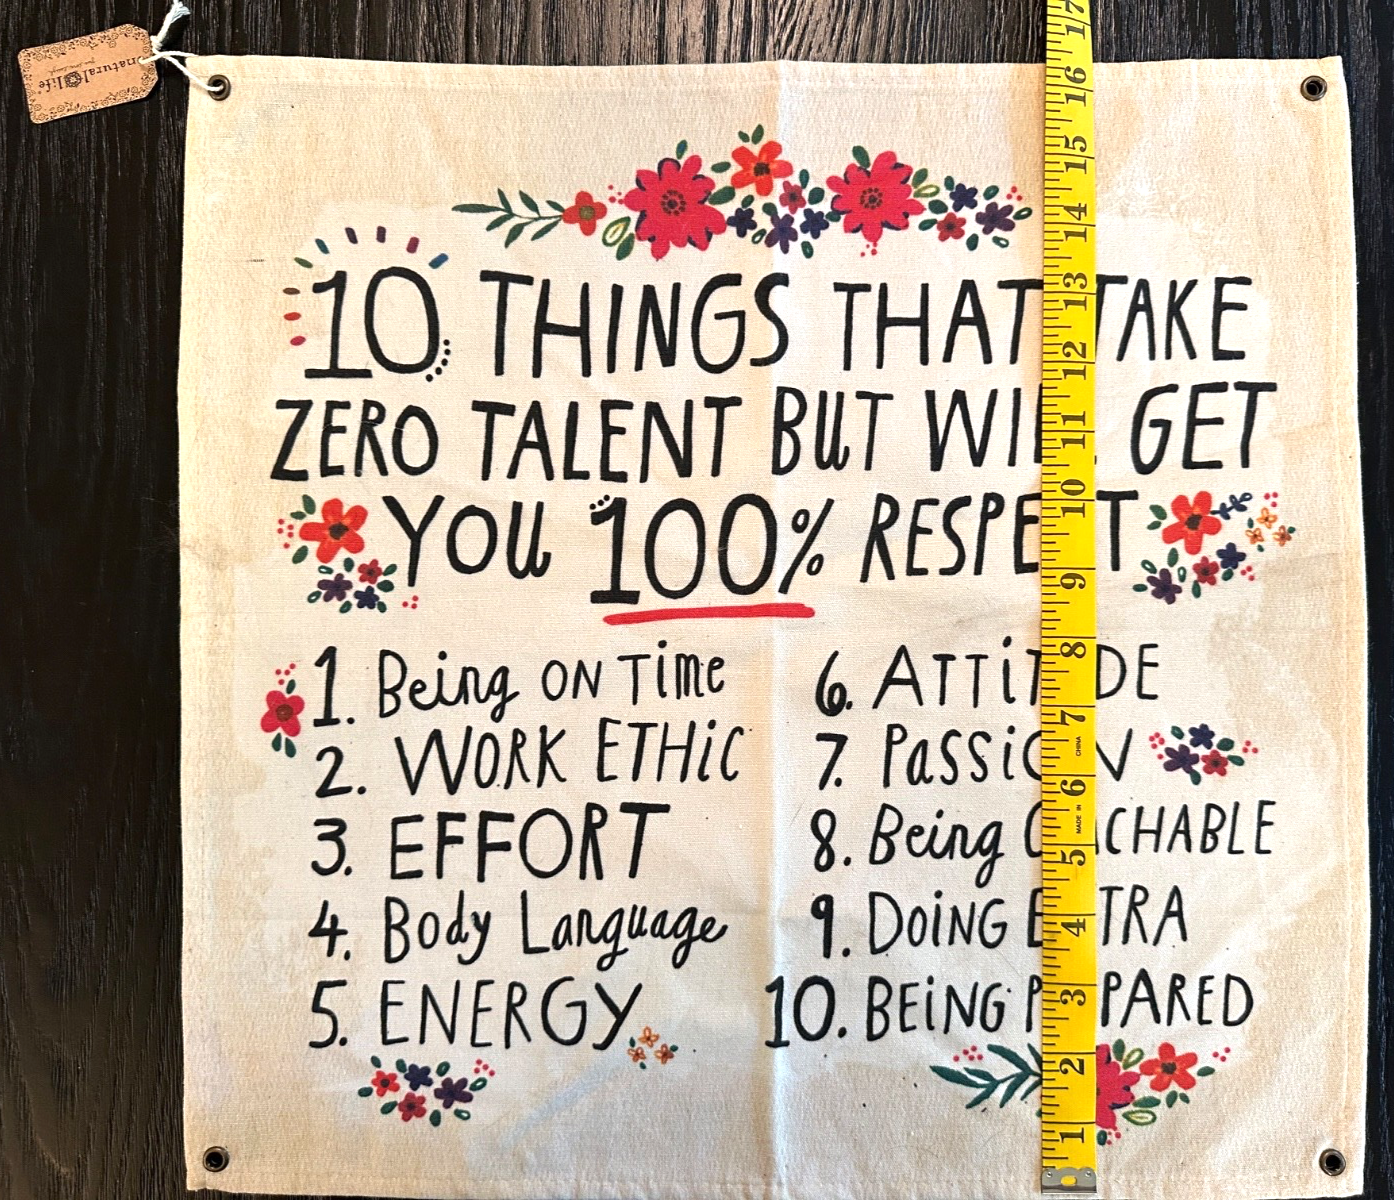 natural life
10 THINGS THAT TAKE
ZERO TALENT BUT WILL GET
YOU 100% RESPECT
1. Being ON Time
2. WORK ETHiC
3. EFFORT
4. Body Language
5. ENERGY
6. ATTiTUDE
7. PASSiON
8. Being COACHABLE
9. DOiNG EXTRA
10. BEiNG PREPARED
1 2 3 4 5 MADE IN 6 CHINA 7 8 9 10 11 12 13 14 15 16 17